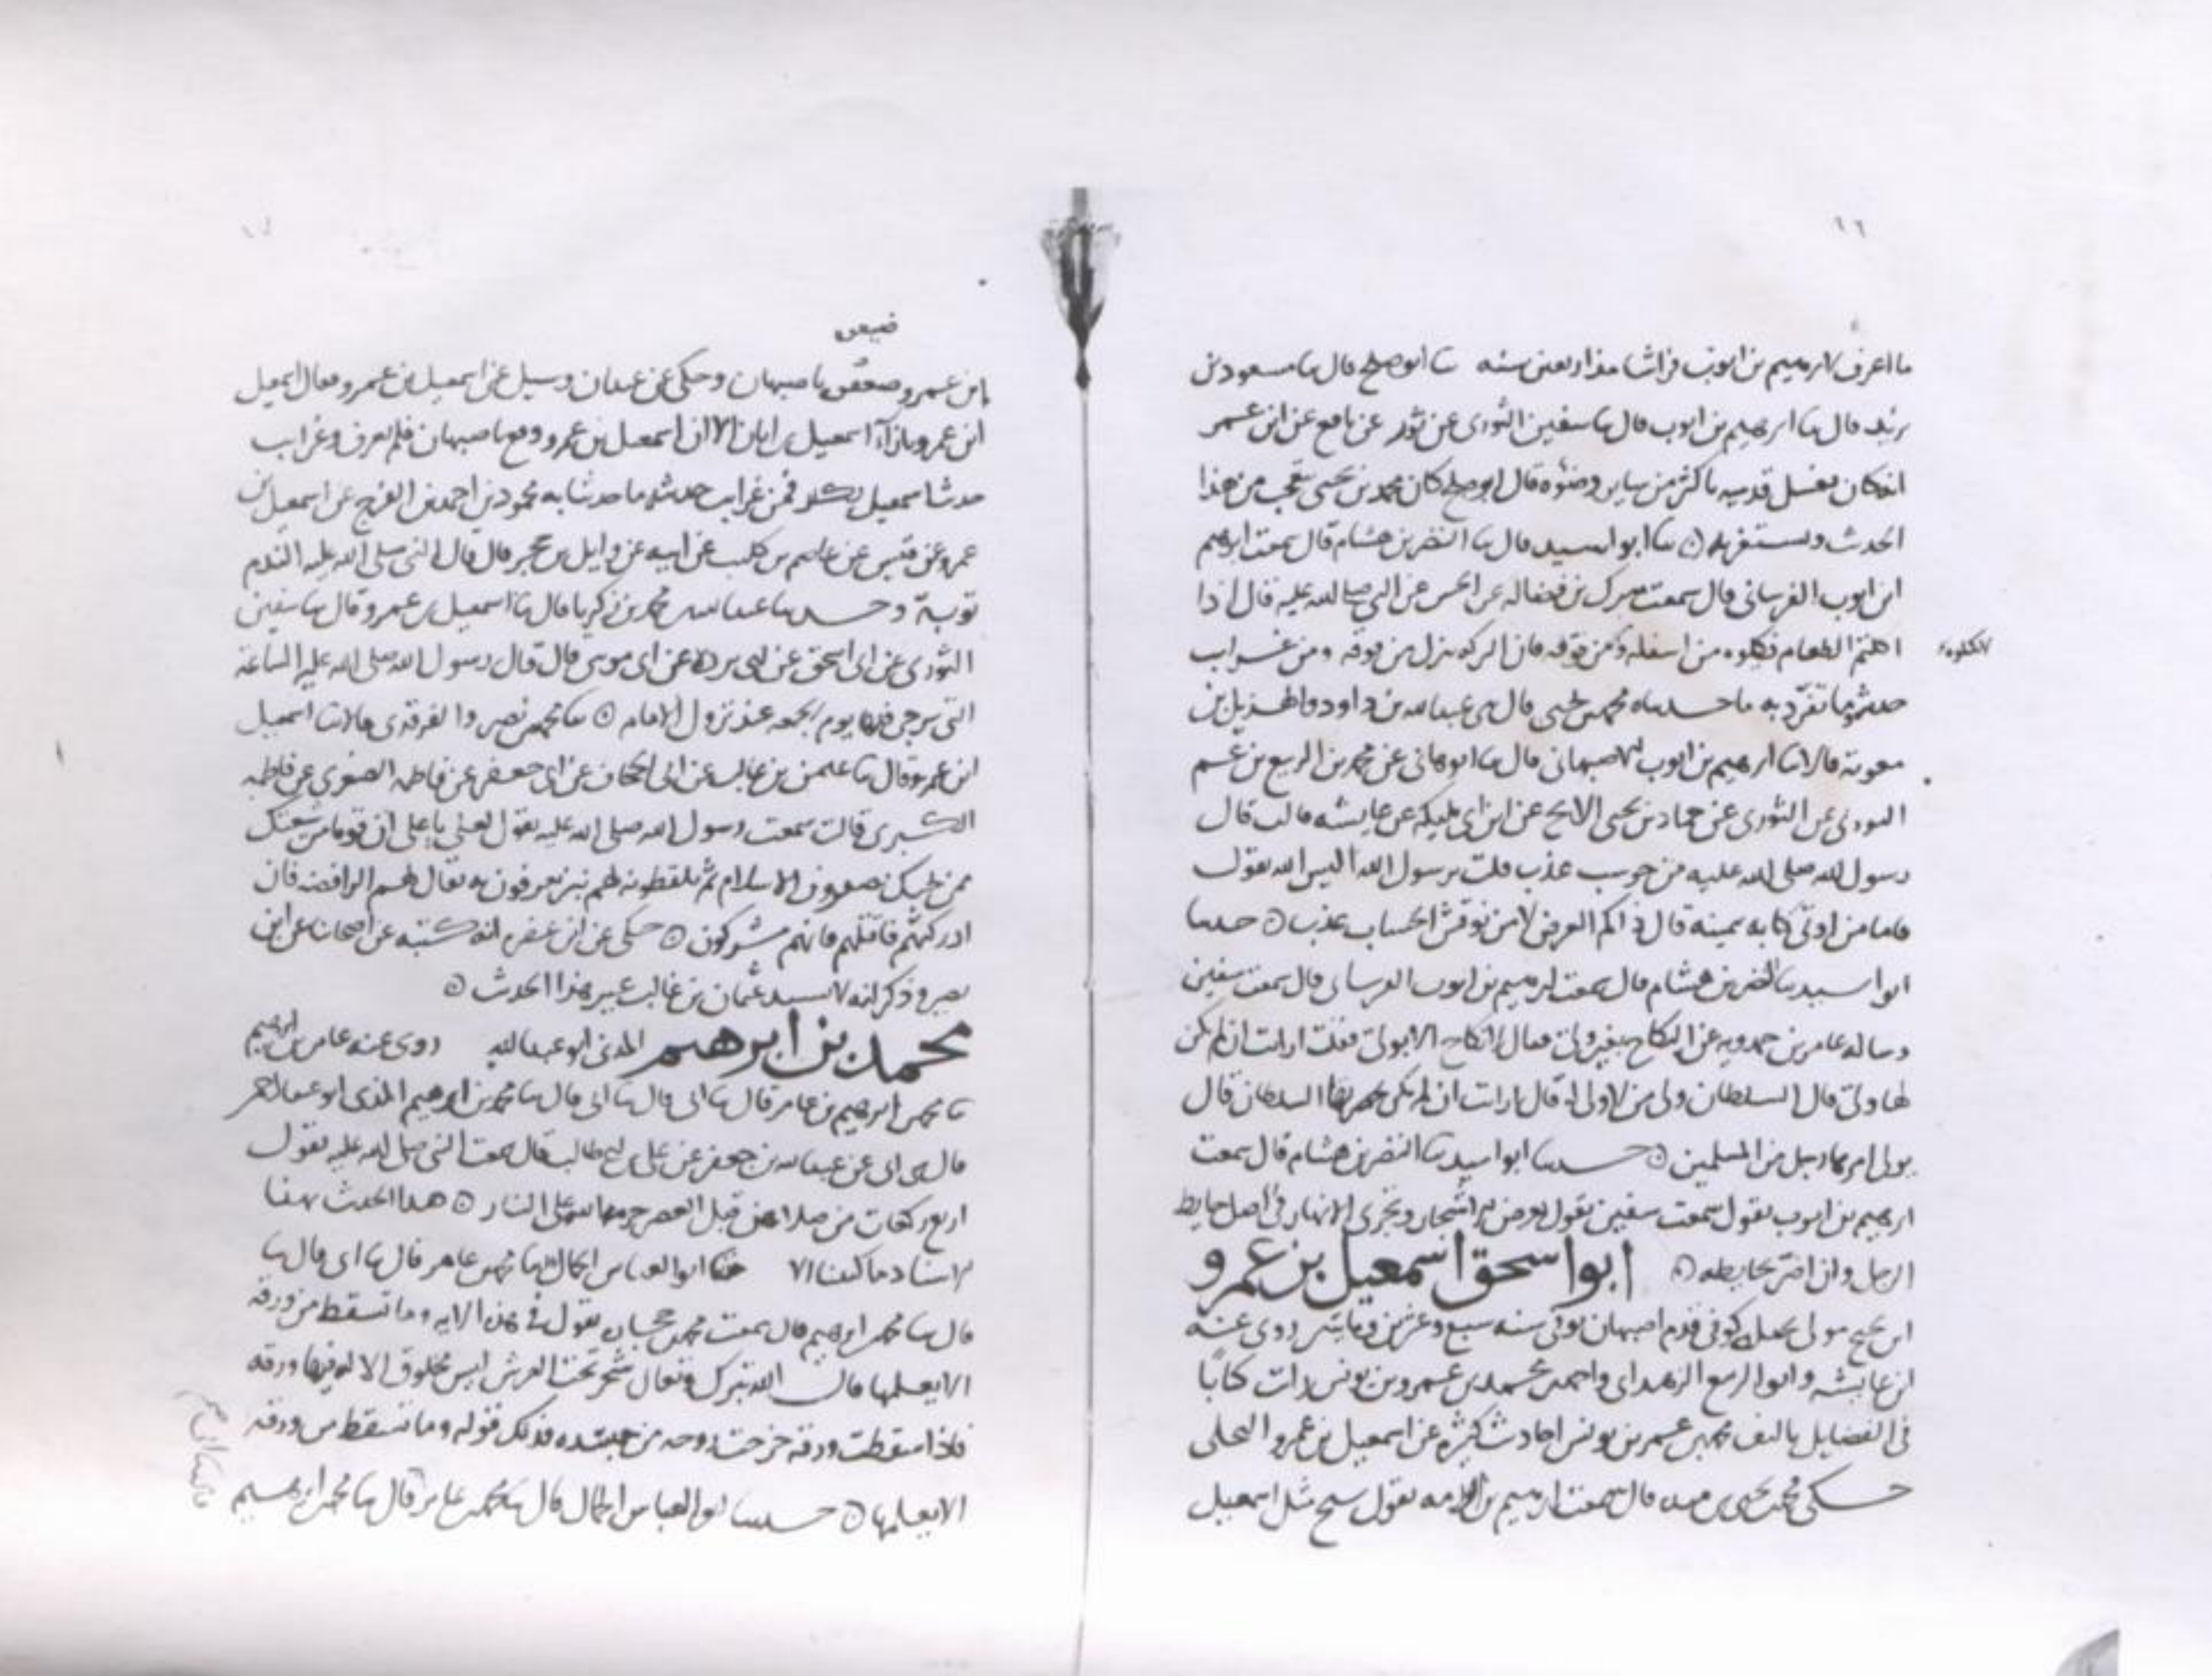 ما اعرف لابرهيم بن ايوب فراشا منذ اربعين سنه ثنا ابو صلح قال ثنا مسعود بن
يزيد قال ثنا ابرهيم بن ايوب قال ثنا سفين الثوري عن ثور عن نافع عن ابن عمر
انه كان يغسل قدميه باكثر من ساير وضوئه قال ابو صلح كان محمد بن يحيى يعجب من هذا
الحديث ويستغربه ثنا ابو اسيد قال ثنا النضر بن هشام قال سمعت ابرهيم
ابن ايوب الفرساني قال سمعت مبرك بن فضاله عن الحسن عن النبي صلى الله عليه قال اذا
الطعام فكلوه من اسفله ومن فوقه فان البركه تنزل من فوقه ومن غرايب
حديثه وما تفرد به ما حدثناه محمد بن يحيى قال ثنى عبد الله بن داود والهذيل بن
معوية قالا ثنا ابرهيم بن ايوب الاصبهاني قال ثنا ابو هاني عن محمد بن الربيع بن
عن الثوري عن حماد بن يحيى الابح عن ابن ابي مليكه عن عايشه قالت قال
رسول الله صلى الله عليه من حوسب عذب قلت يرسول الله اليس الله يقول
فاما من اوتى كتابه بيمينه قال ذاكم العرض لا من نوقش الحساب عذب حدثنا
ابو اسيد ثنا النضر بن هشام قال سمعت ابرهيم بن ايوب الفرساني قال سمعت سفين
وساله عامر بن حمدويه عن النكاح بغير ولي فقال لا نكاح الا بولي فقلت ارايت ان لم يكن
لها ولي قال السلطان ولي من لا ولي له قال ارايت ان لم يكن السلطان قال
يولي امرها رجل من المسلمين حدثنا ابو اسيد ثنا النضر بن هشام قال سمعت
ابرهيم بن ايوب يقول سمعت سفين يقول يعرض وتجرى الانهار في اصل حايط
الرجل وان اضر بحايطه ابو اسحق اسمعيل بن عمرو
ابن نجيح مولى بجيله كوفي قدم اصبهان توفي سنه سبع وعشرين ومايتين روى عنه
ابن عايشه وابو الربيع الزهراني واحمد بن محمد بن عمرو بن يونس رايت كتابا
في الفضايل تاليف محمد بن عمر بن يونس احاديث كثيره عن اسمعيل بن عمرو البجلي
حكى محمد بن يحيى بن منده قال سمعت ابرهيم بن اورمه يقول شيخ مثل اسمعيل
لا تكلوه
ضيعوه
ابن عمرو باصبهان وحكى عن عبدان وسيل عن اسمعيل بن عمرو فقال اسمعيل
ابن عمرو بازآء اسمعيل بن ابان الا ان اسمعيل بن عمرو وقع باصبهان فلم يعرف وغرايب
حديث اسمعيل تكثر فمن غرايب حديثه ما حدثنا به محمود بن احمد بن الفرج عن اسمعيل بن
عمرو عن قيس عن عاصم بن كليب عن ابيه عن وايل بن حجر قال قال النبي صلى الله عليه الندم
توبة وحدثنا عبد الله بن محمد بن زكريا قال ثنا اسمعيل بن عمرو قال ثنا سفين
الثوري عن ابي اسحق عن ابي برده عن ابي موسى قال قال رسول الله صلى الله عليه الساعة
التي يرجى فيها يوم الجمعه عند نزول الامام ثنا محمد بن نصير والفرقدي قالا ثنا اسمعيل
ابن عمرو قال ثنا عثمن بن غالب عن ابي الجحاف عن ابي جعفر عن فاطمه الصغرى عن فاطمه
الكبرى قالت سمعت رسول الله صلى الله عليه يقول لعلي يا علي ان قوما من شيعتك
ممن يحبك الاسلام ثم يلفظونه لهم نبز يعرفون به يقال لهم الرافضه فان
ادركتهم فاقتلهم فانهم مشركون حكى عن ابن انه كتبه عن اصحابنا عن ابن
نصير وذكر انه لا يسند عثمان بن غالب غير هذا الحديث
محمد بن ابرهيم المدني ابو عبد الله روى عنه عامر بن ابرهيم
ثنا محمد بن ابرهيم بن عامر قال ثنا ابي قال ثنا ابي قال ثنا محمد بن ابرهيم المدني ابو عبد الله
قال ثنى ابي عن عبد الله بن جعفر عن علي بن ابي طالب قال سمعت النبي صلى الله عليه يقول
اربع ركعات من صلاهن قبل العصر حرمه الله على النار هذا الحديث بهذا
الاسناد ما كتبنا الا هذا ابو العباس الجمال ثنا محمد بن عامر قال ثنا ابي قال ثنا
قال ثنا محمد بن ابرهيم قال سمعت محمد بن يقول في هذه الايه وما تسقط من ورقه
الا يعلمها قال الله تبرك وتعالى شجره تحت العرش ليس مخلوق الا له فيها ورقه
فاذا سقطت ورقته خرجت روحه من جسده فذلك قوله وما تسقط من ورقه
الا يعلمها حدثنا ابو العباس الجمال قال ثنا محمد بن عامر قال ثنا محمد بن ابرهيم